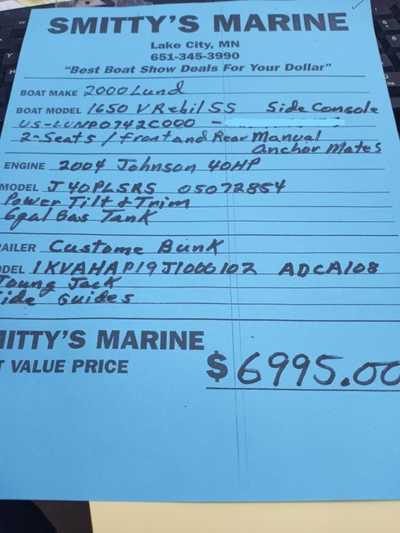 SMITTY'S MARINE
Lake City, MN
651-345-3990
"Best Boat Show Deals For Your Dollar"
BOAT MAKE 2000 Lund
BOAT MODEL 1650 V Rebil SS Side Console
US-LUNP0742C000 -
2-Seats / Front and Rear Manual
Anchor Mates
ENGINE 2004 Johnson 40HP
MODEL J40PLSRS 05072854
Power Tilt & Trim
6gal Gas Tank
RAILER Custome Bunk
ODEL 1KVAHAP19J1000102 ADCA108
Toung Jack
ide Guides
MITTY'S MARINE
T VALUE PRICE $6995.00